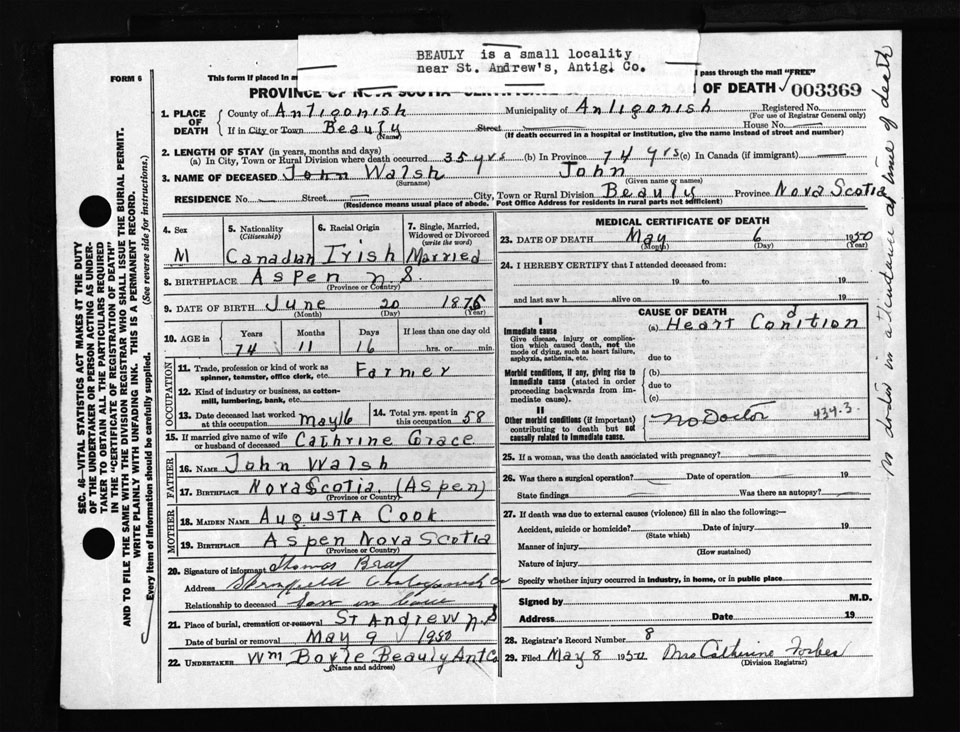 BEAULY is a small locality
near St. Andrew's, Antig. Co.
FORM 6
This form if placed in pass through the mail "FREE"
PROVINCE OF NOVA SCOTIA CERTIFICATE OF DEATH 003369
1. PLACE OF DEATH County of Antigonish Municipality of Antigonish Registered No.
(For use of Registrar General only)
If in City or Town Beauly Street House No.
(Name) (If death occurred in a hospital or institution, give the name instead of street and number)
2. LENGTH OF STAY (in years, months and days)
(a) In City, Town or Rural Division where death occurred 35 yrs (b) In Province 74 yrs (c) In Canada (if immigrant)
3. NAME OF DECEASED John Walsh John
(Surname) (Given name or names)
RESIDENCE No. Street City, Town or Rural Division Beauly Province Nova Scotia
(Residence means usual place of abode. Post Office Address for residents in rural parts not sufficient)
4. Sex 5. Nationality (Citizenship) 6. Racial Origin 7. Single, Married, Widowed or Divorced (write the word)
M Canadian Irish Married
8. BIRTHPLACE Aspen N.S.
(Province or Country)
9. DATE OF BIRTH June 20 1875
(Month) (Day) (Year)
10. AGE in Years Months Days If less than one day old
74 11 16 hrs. or min.
OCCUPATION
11. Trade, profession or kind of work as spinner, teamster, office clerk, etc. Farmer
12. Kind of industry or business, as cotton-mill, lumbering, bank, etc.
13. Date deceased last worked at this occupation May 6 14. Total yrs. spent in this occupation 58
15. If married give name of wife or husband of deceased Cathrine Grace
FATHER
16. NAME John Walsh
17. BIRTHPLACE Nova Scotia (Aspen)
(Province or Country)
MOTHER
18. MAIDEN NAME Augusta Cook
19. BIRTHPLACE Aspen Nova Scotia
(Province or Country)
20. Signature of informant Thomas
Address Co
Relationship to deceased Son in law
21. Place of burial, cremation or removal St Andrew N.S
Date of burial or removal May 9 1950
22. UNDERTAKER Wm Boyle Beauly Ant Co
(Name and address)
MEDICAL CERTIFICATE OF DEATH
23. DATE OF DEATH May 6 1950
(Month) (Day) (Year)
24. I HEREBY CERTIFY that I attended deceased from:
19 to 19
and last saw h alive on 19
CAUSE OF DEATH
I
Immediate cause (a) Heart Condition
Give disease, injury or complication which caused death, not the mode of dying, such as heart failure, asphyxia, asthenia, etc.
due to
Morbid conditions, if any, giving rise to immediate cause (stated in order proceeding backwards from immediate cause).
(b)
due to
(c)
II
Other morbid conditions (if important) contributing to death but not causally related to immediate cause.
No Doctor 434.3
25. If a woman, was the death associated with pregnancy?
26. Was there a surgical operation? Date of operation 19
State findings Was there an autopsy?
27. If death was due to external causes (violence) fill in also the following:—
Accident, suicide or homicide? Date of injury 19
(State which)
Manner of injury
(How sustained)
Nature of injury
Specify whether injury occurred in industry, in home, or in public place
Signed by M.D.
Address Date 19
28. Registrar's Record Number 8
29. Filed May 8 1950 Mrs Catherine Forbes
(Division Registrar)
no doctor in attendance at time of death
SEC. 46—VITAL STATISTICS ACT MAKES IT THE DUTY
OF THE UNDERTAKER OR PERSON ACTING AS UNDER-
TAKER TO OBTAIN ALL THE PARTICULARS REQUIRED
IN THE "CERTIFICATE OF REGISTRATION OF DEATH"
AND TO FILE THE SAME WITH THE DIVISION REGISTRAR WHO SHALL ISSUE THE BURIAL PERMIT.
WRITE PLAINLY WITH UNFADING INK. THIS IS A PERMANENT RECORD.
Every item of Information should be carefully supplied. (See reverse side for instructions.)